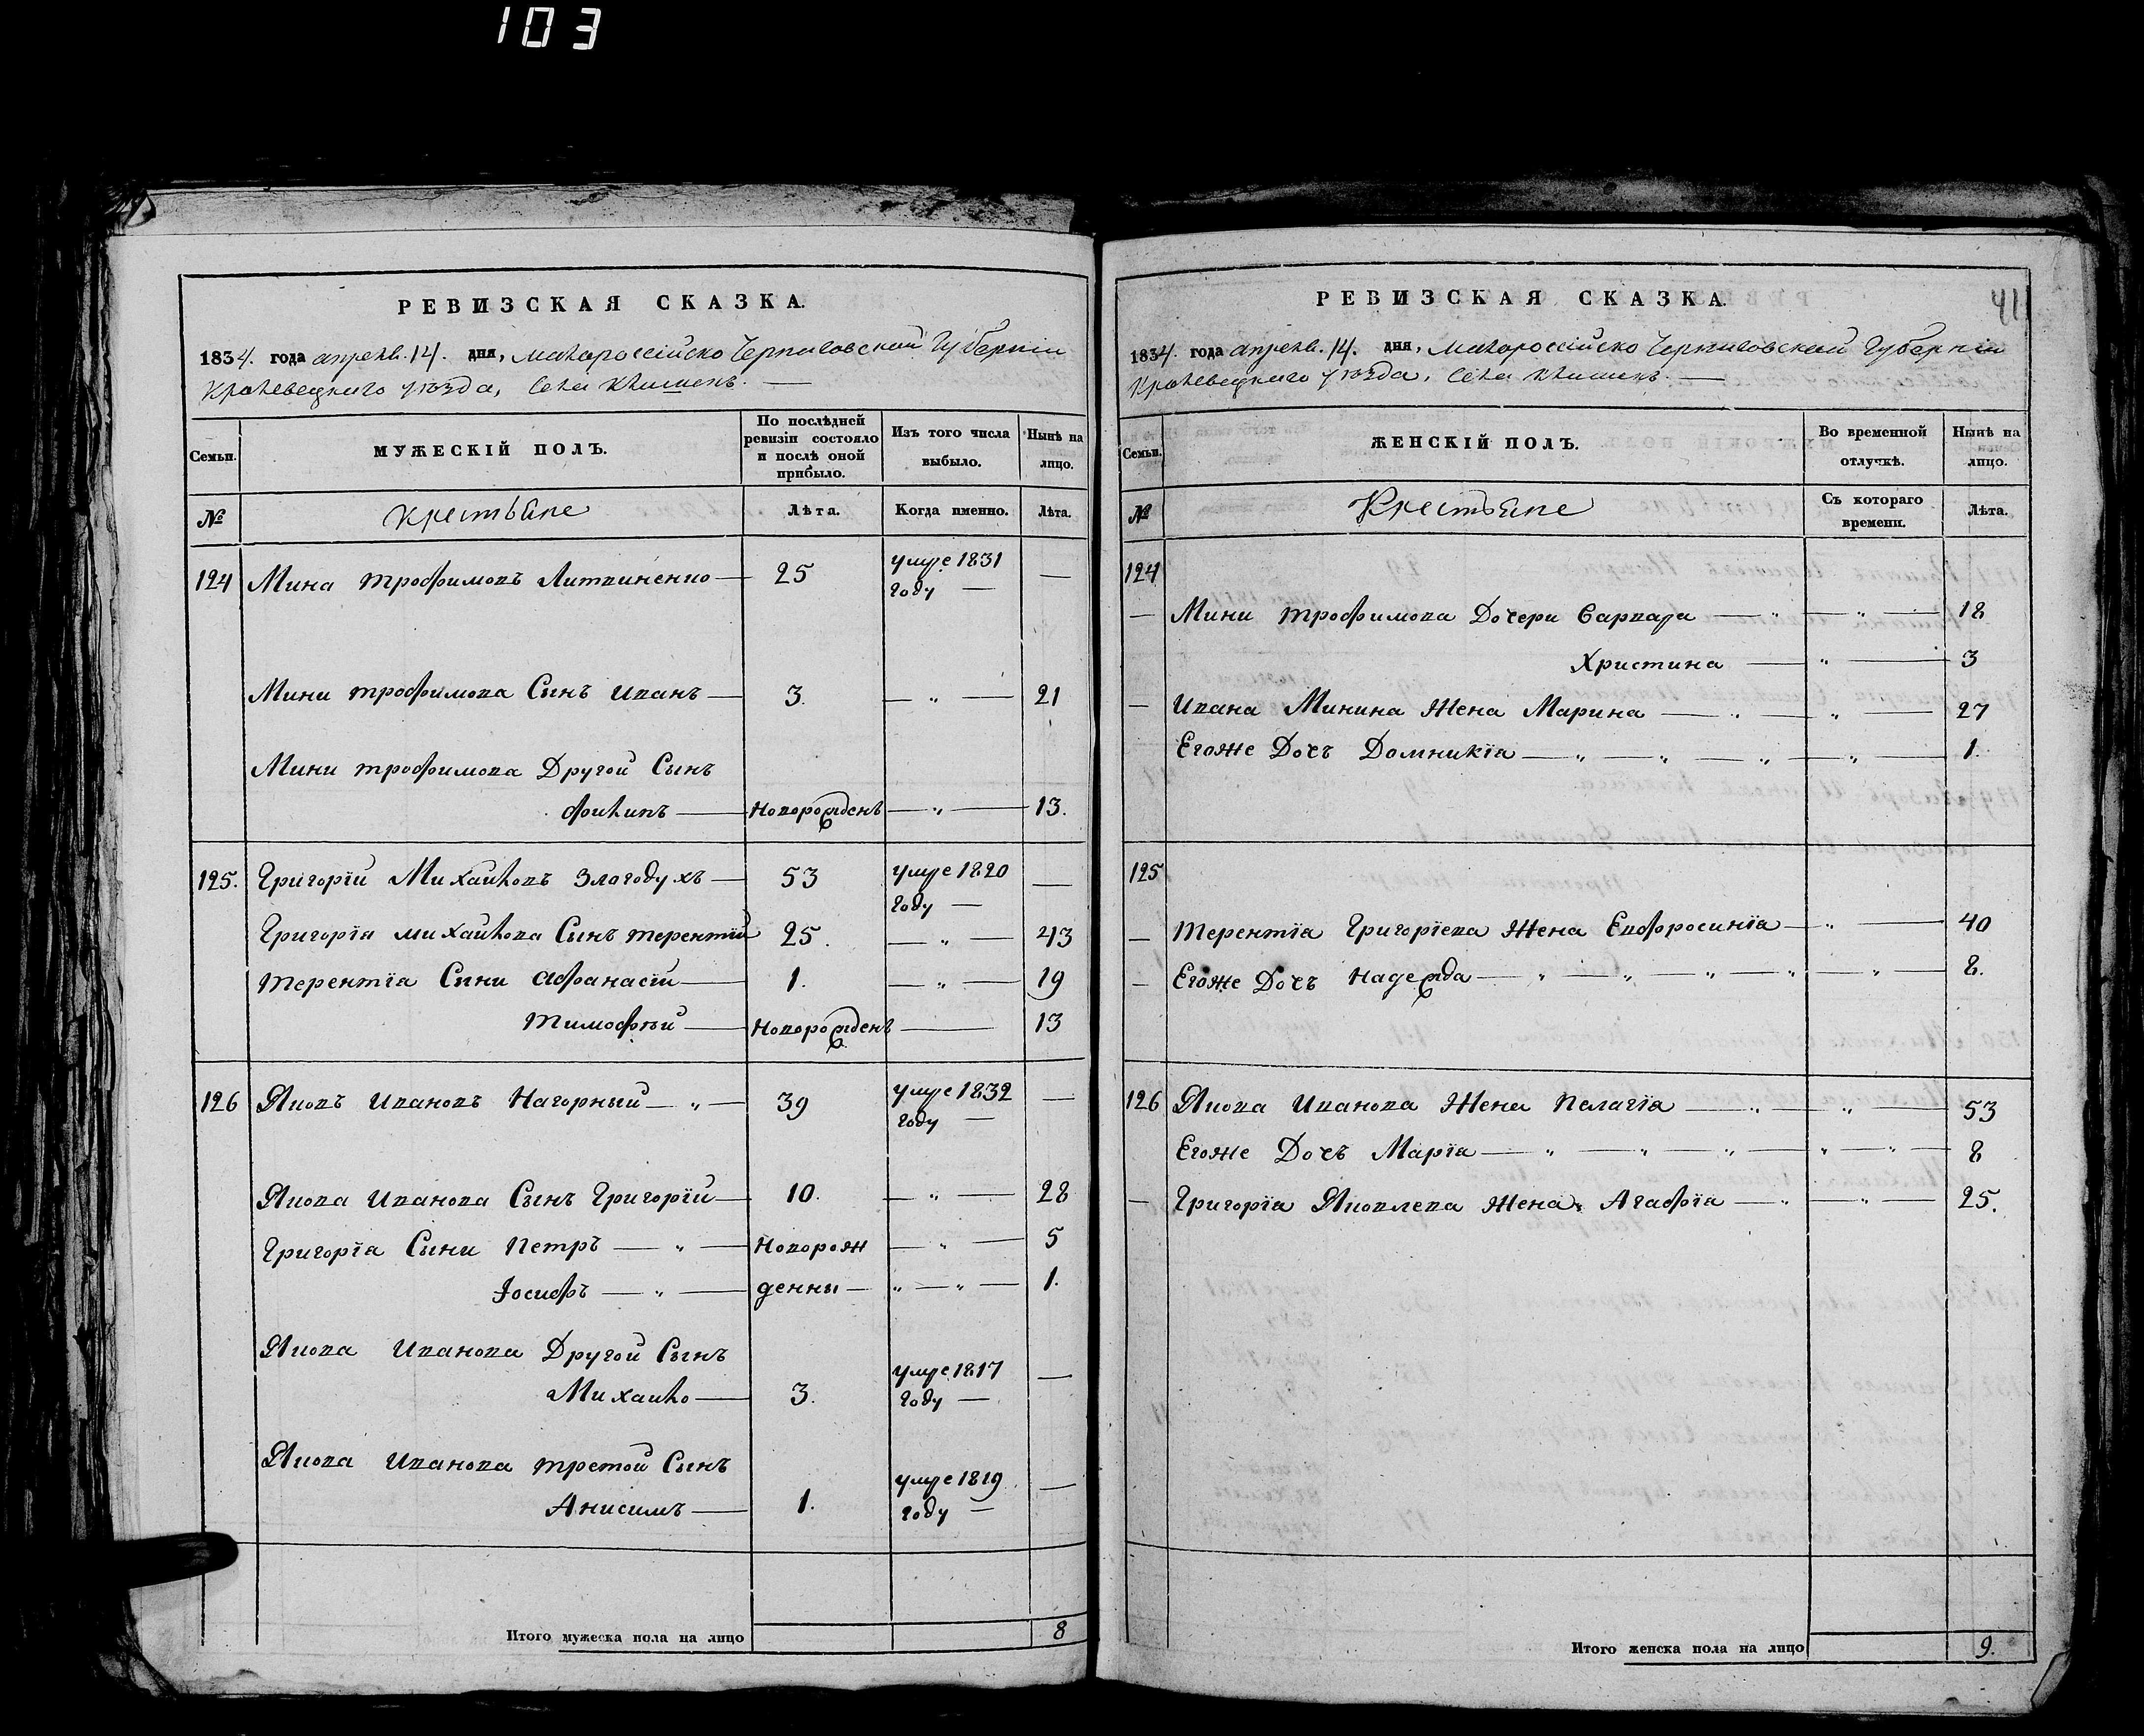 103
РЕВИЗСКАЯ СКАЗКА.
1834. года апрелв. 14. дня, Малороссійско Черниговской Губерніи
Кролевецкого уѣзда, Села Клишекъ. —
Семьи. МУЖЕСКІЙ ПОЛЪ. По послѣдней ревизіи состояло и послѣ оной прибыло. Изъ того числа выбыло. Нынѣ на лицо.
№ Крестьяне Лѣта. Когда именно. Лѣта.
124 Мина Трофимовъ Литвиненко — 25 умре 1831 году — —
Мини Трофимова Сынъ Иванъ — 3. — „ — 21
Мини Трофимова Другой Сынъ
Филипъ — Новорожденъ — „ — 13.
125. Григорій Михайловъ Злогодухъ — 53 умре 1820 году — —
Григорія Михайлова Сынъ Терентій 25. — „ — 43
Терентія Сини Афанасій — 1. — „ — 19
Тимофѣй — Новорожденъ — 13
126 Яковъ Ивановъ Нагорный — „ — 39 умре 1832 году — —
Якова Иванова Сынъ Григорій — 10. — „ — 28
Григорія Сыни Петръ — „ — Новорож — „ — 5
Іосифъ — „ — денны — „ — „ — 1.
Якова Иванова Другой Сынъ
Михайло — 3. умре 1817 году — —
Якова Иванова Третой Сынъ
Анисимъ — 1. умре 1819 году — —
Итого мужеска пола на лицо 8
РЕВИЗСКАЯ СКАЗКА. 41
1834. года апрелв. 14. дня, Малороссійско Черниговской Губерніи
Кролевецкаго уѣзда, Села Клишекъ. —
Семьи. ЖЕНСКІЙ ПОЛЪ. Во временной отлучкѣ. Нынѣ на лицо.
№ Крестьяне Съ котораго времени. Лѣта.
124
— Мини Трофимова Дочери Варвара — „ — „ — 18
Христина — „ — 3
— Ивана Минина Жена Марина — „ — „ — 27
Егоже Дочъ Домникія — „ — „ — „ — „ — 1.
125
— Терентія Григоріева Жена Евфросинія — „ — 40
— Егоже Дочъ Надежда — „ — „ — „ — „ — „ — 8.
126 Якова Иванова Жена Пелагія — „ — „ — 53
Егоже Дочъ Марія — „ — „ — „ — „ — „ — 8
— Григорія Яковлева Жена Агафія — „ — „ — 25.
Итого женска пола на лицо 9.